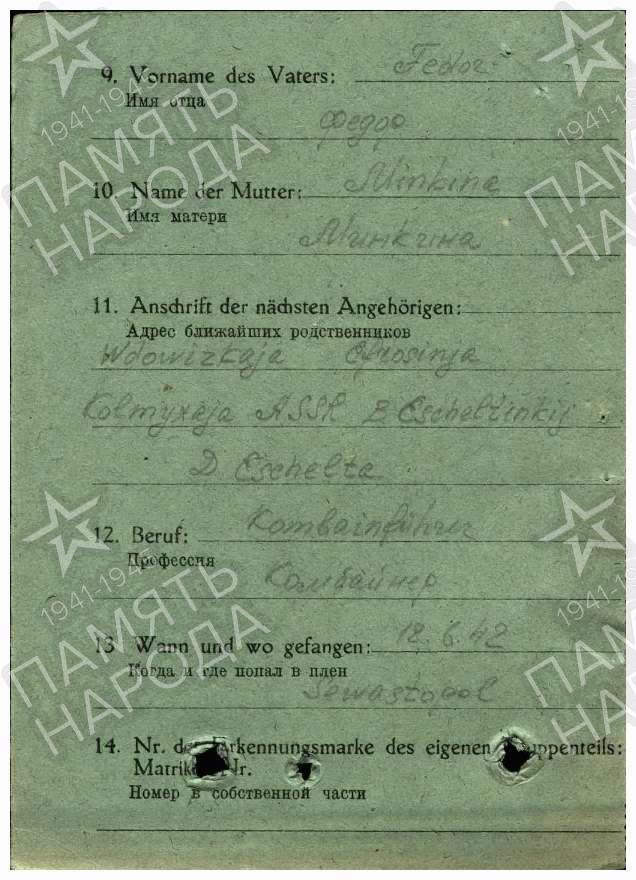 9. Vorname des Vaters: Fedor
Имя отца
Федор
10. Name der Mutter: Minkina
Имя матери
Минкина
11. Anschrift der nächsten Angehörigen:
Адрес ближайших родственников
Wdowizkaja Efrosinja
Kolmyxaja ASSR Escheltinkij
D Eschelta
12. Beruf: Kombainführer
Профессия
Комбайнер
13 Wann und wo gefangen: 12. 6. 42
Когда и где попал в плен
Sewastopol
14. Nr. der Erkennungsmarke des eigenen Truppenteils:
Matrikel Nr.
Номер в собственной части
1941-1945
ПАМЯТЬ
НАРОДА
1941-1945
ПАМЯТЬ
НАРОДА
1941-1945
ПАМЯТЬ
НАРОДА
1941-1945
ПАМЯТЬ
НАРОДА